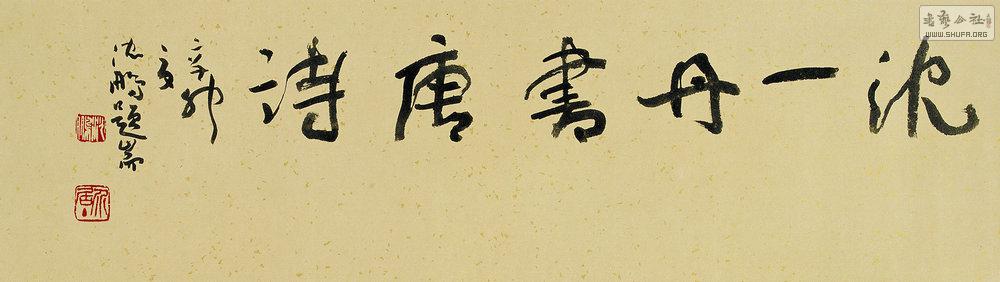 沈一丹書唐詩
辛卯
夏
沈鵬題耑
書藝公社
WWW.SHUFA.ORG